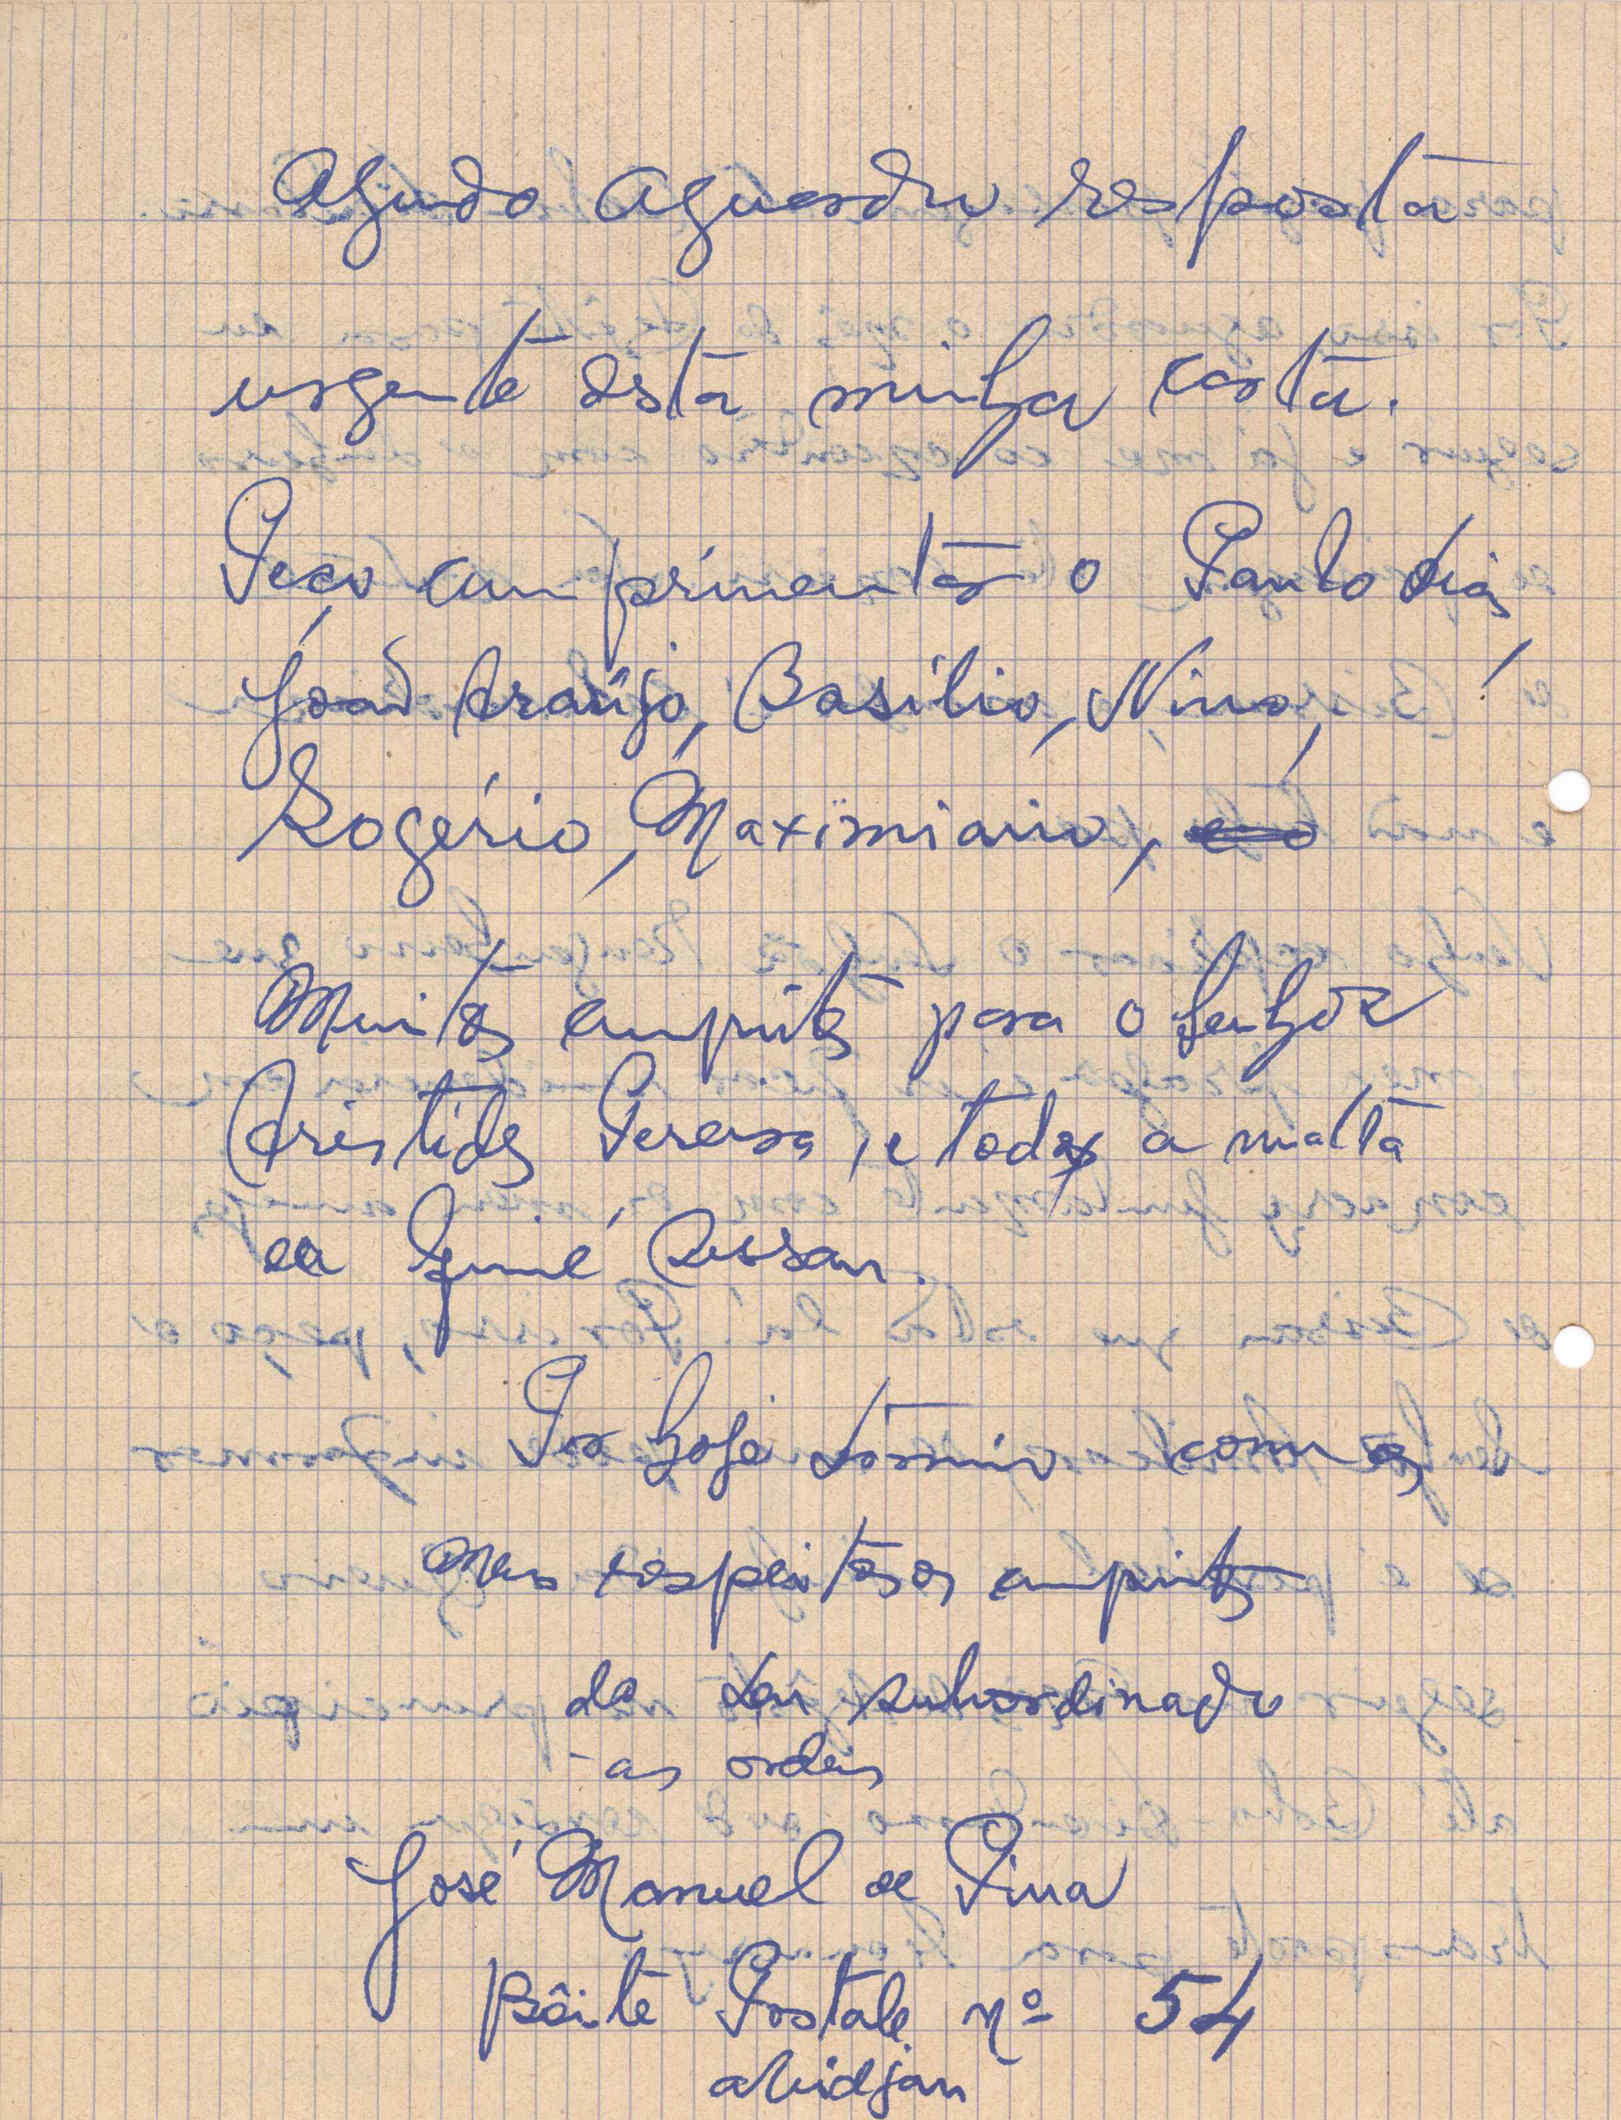 Agudo aguardo resposta
urgente desta minha carta.
Peço cumprimentar o Paulo dias,
João Araújo, Basílio, Nino, !
Rogério, Maximiano,
Muitos cumprits para o Senhor
Aristides Pereira, e toda a malta
da Guiné Bissau.
Por hoje termino com os
meus respeitosos cumprits
do seu subordinado
- as ordens
José Manuel de Pina
Bôite Postale nº 54
abidjan